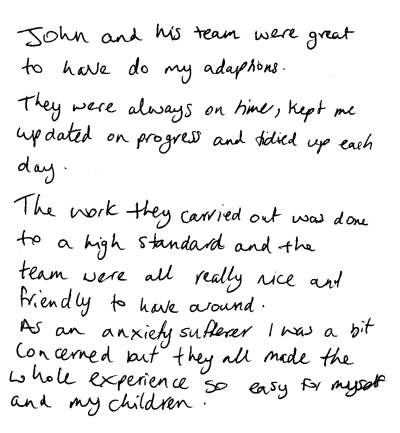 John and his team were great
to have do my adaptions.
They were always on time, kept me
updated on progress and tidied up each
day.
The work they carried out was done
to a high standard and the
team were all really nice and
friendly to have around.
As an anxiety sufferer I was a bit
concerned but they all made the
whole experience so easy for myself
and my children.